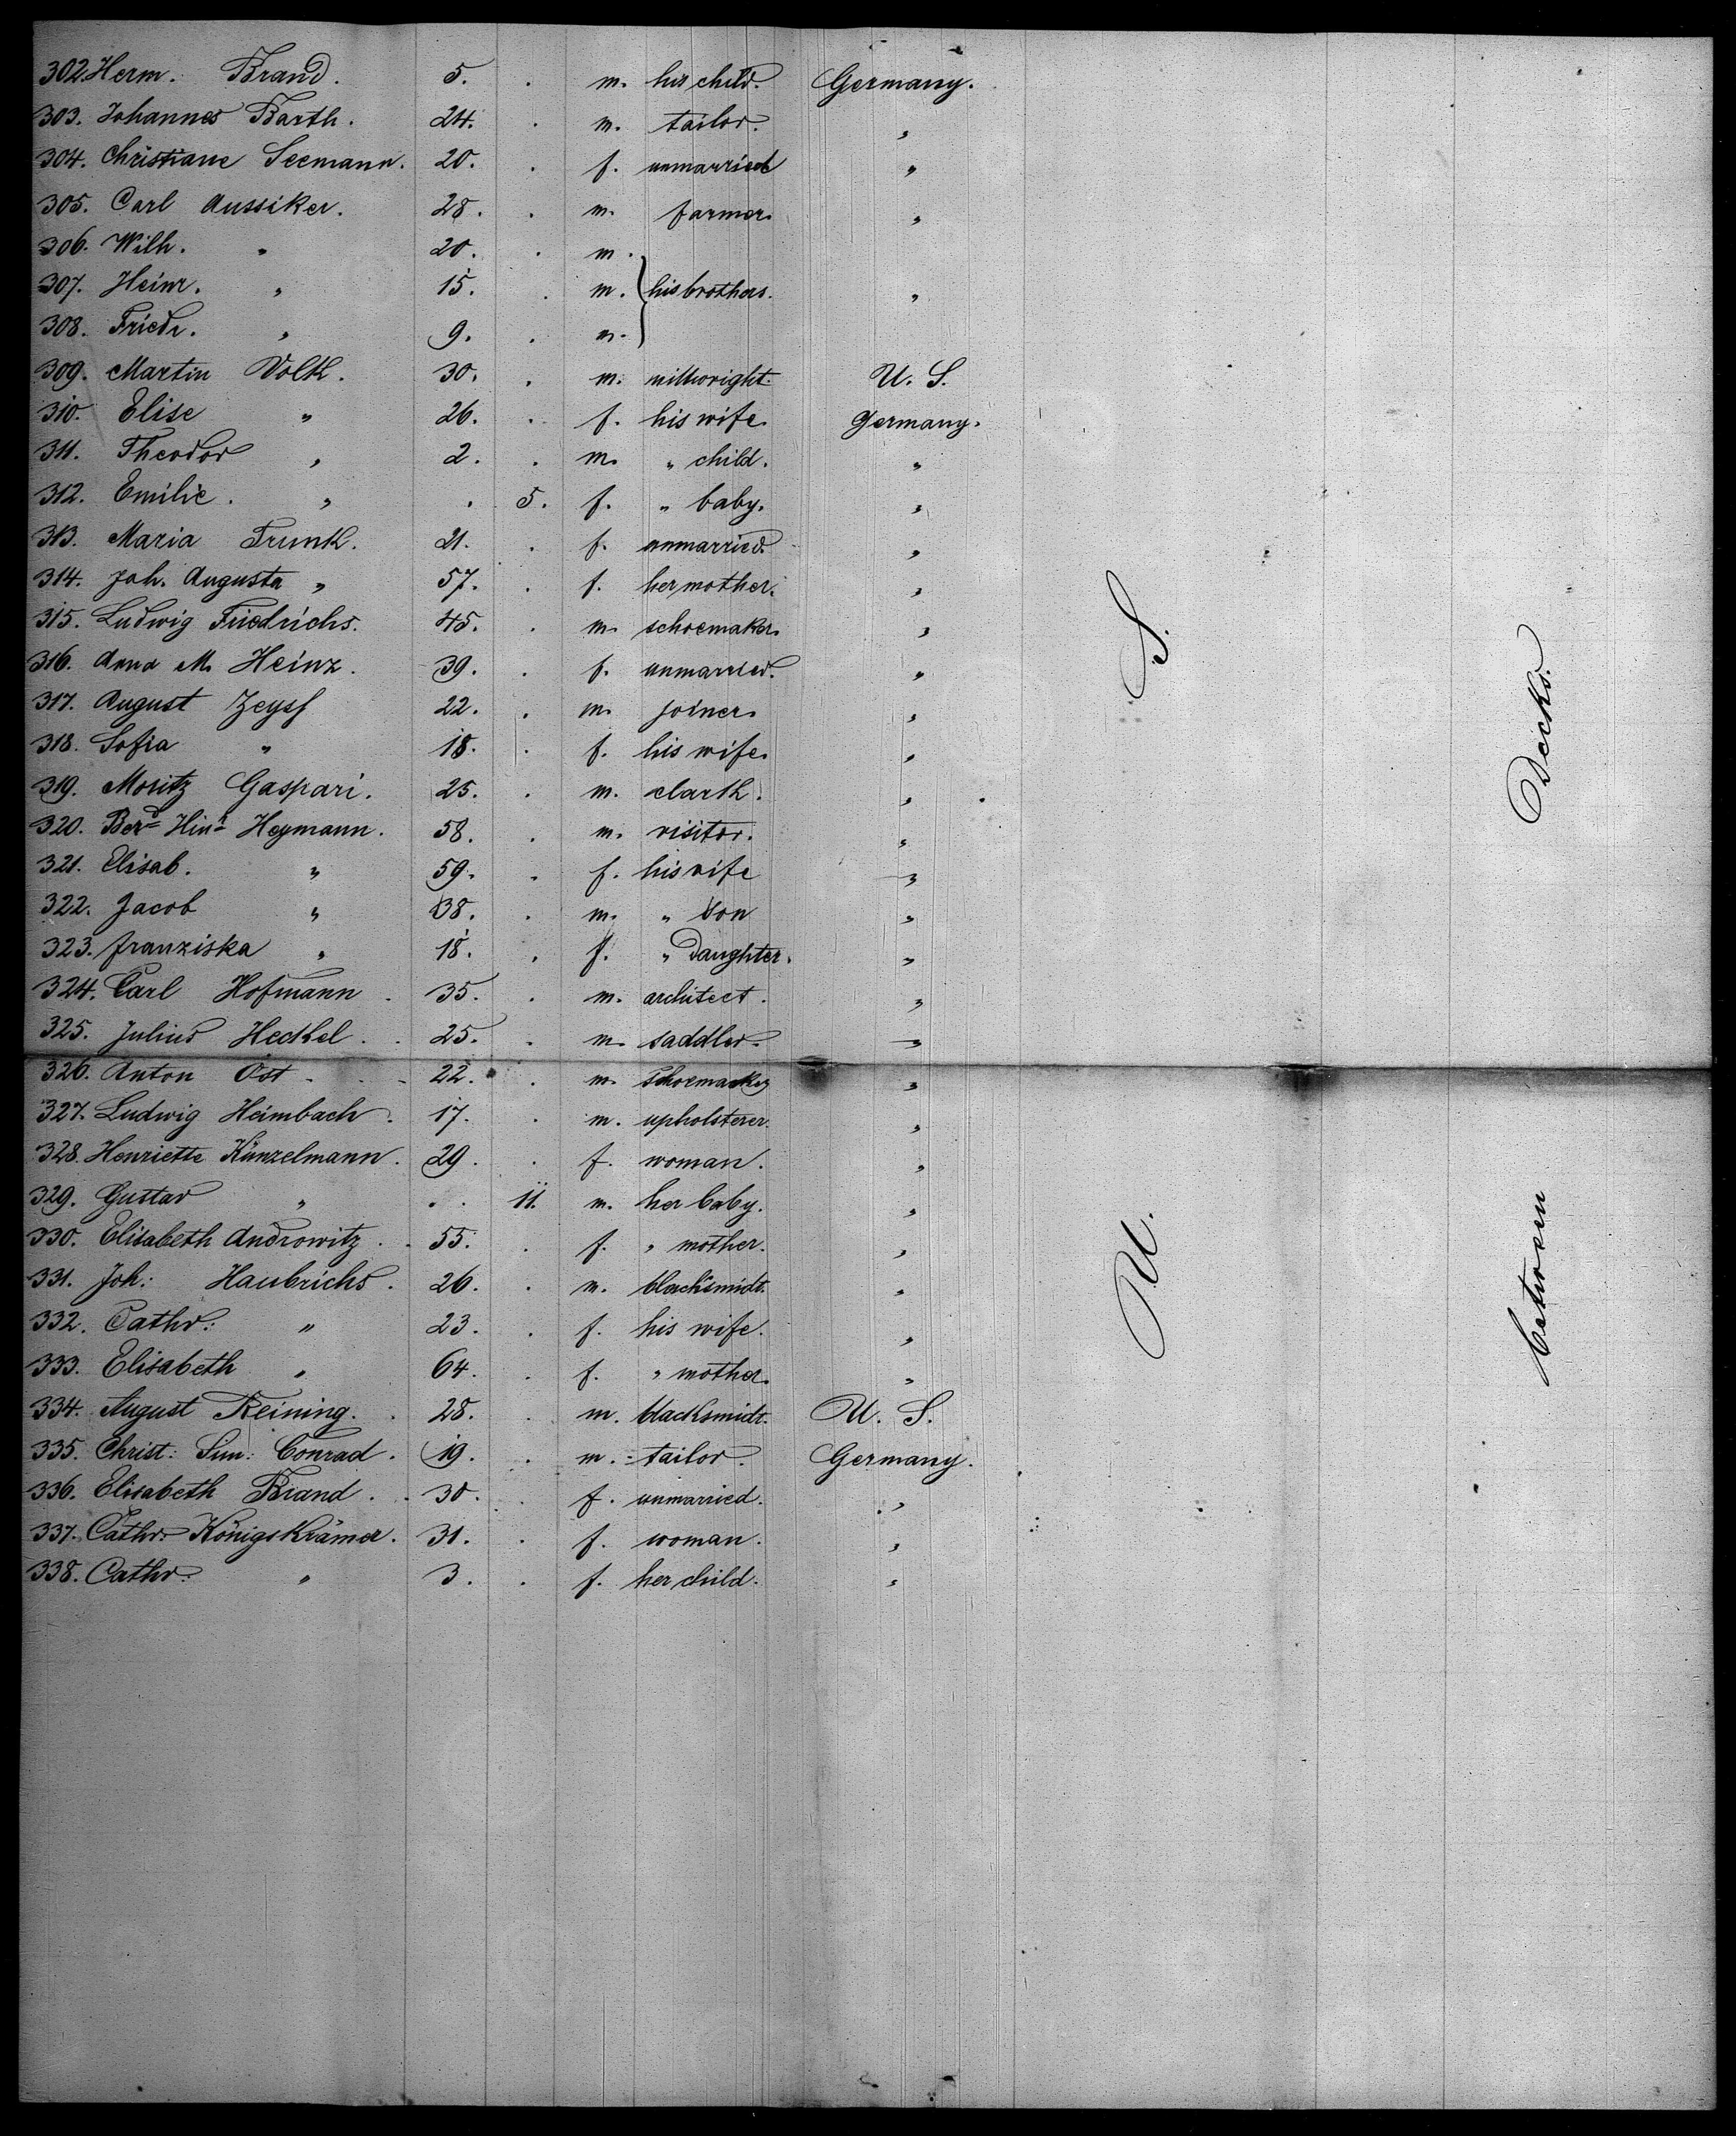 302. Herm. Brand. 5. . m. his child. Germany.
303. Johannes Barth. 24. . m. tailor. "
304. Christiane Seemann. 20. . f. unmarried "
305. Carl Aussiker. 28. . m. farmer. "
306. Wilh. " 20. . m.
307. Heinr. " 15. . m. his brothers. "
308. Friedr. " 9. . m.
309. Martin Volk. 30. . m. millwright. U. S.
310. Elise " 26. . f. his wife. Germany.
311. Theodor " 2. . m. " child. "
312. Emilie. " . 5. f. " baby. "
313. Maria Trunk. 21. . f. unmarried. "
314. Joh. Augusta " 57. . f. her mother. "
315. Ludwig Friedrichs. 45. . m. schoemaker. "
316. Anna M. Heinz. 39. . f. unmarried. "
317. August Zeyss 22. . m. joiner. "
318. Sofia " 18. . f. his wife. "
319. Moritz Gaspari. 25. . m. clark. "
320. Berd Hinr Heymann. 58. . m. visitor. "
321. Elisab. " 59. . f. his wife "
322. Jacob " 38. . m. " son "
323. Franziska " 18. . f. " daughter. "
324. Carl Hofmann. 35. . m. architect. "
325. Julius Heckel. 25. . m. saddler. "
326. Anton Ost. 22. . m. schoemacker "
327. Ludwig Heimbach. 17. . m. upholsterer. "
328. Henriette Künzelmann. 29. . f. woman. "
329. Gustav " . 11. m. her baby. "
330. Elisabeth Androwitz. 55. . f. " mother. "
331. Joh: Haubrichs. 26. . m. blacksmidt. "
332. Cathr: " 23. . f. his wife. "
333. Elisabeth " 64. . f. " mother. "
334. August Reining. 28. . m. blacksmidt. U. S.
335. Christ: Sim: Conrad. 19. . m. tailor. Germany.
336. Elisabeth Brand. 30. . f. unmarried. "
337. Cathr: Königskrämer. 31. . f. woman. "
338. Cathr: " 3. . f. her child. "
U. S.
between Decks.